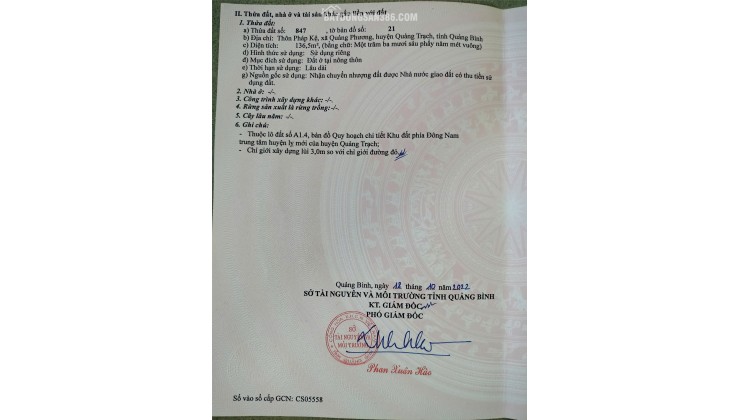 BATDONGSAN386.COM
II. Thửa đất, nhà ở và tài sản khác gắn liền với đất
1. Thửa đất:
a) Thửa đất số: 847 , tờ bản đồ số: 21
b) Địa chỉ: Thôn Pháp Kệ, xã Quảng Phương, huyện Quảng Trạch, tỉnh Quảng Bình
c) Diện tích: 136,5m², (bằng chữ: Một trăm ba mươi sáu phẩy năm mét vuông)
d) Hình thức sử dụng: Sử dụng riêng
đ) Mục đích sử dụng: Đất ở tại nông thôn
e) Thời hạn sử dụng: Lâu dài
g) Nguồn gốc sử dụng: Nhận chuyển nhượng đất được Nhà nước giao đất có thu tiền sử
dụng đất.
2. Nhà ở: -/-.
3. Công trình xây dựng khác: -/-.
4. Rừng sản xuất là rừng trồng: -/-.
5. Cây lâu năm: -/-.
6. Ghi chú:
- Thuộc lô đất số A1.4, bản đồ Quy hoạch chi tiết Khu đất phía Đông Nam
trung tâm huyện lỵ mới của huyện Quảng Trạch;
- Chỉ giới xây dựng lùi 3,0m so với chỉ giới đường đỏ
Quảng Bình, ngày 12 tháng 10 năm 2022
SỞ TÀI NGUYÊN VÀ MÔI TRƯỜNG TỈNH QUẢNG BÌNH
KT. GIÁM ĐỐC
PHÓ GIÁM ĐỐC
SỞ
TÀI NGUYÊN VÀ
MÔI TRƯỜNG
Phan Xuân Hào
Số vào sổ cấp GCN: CS05558